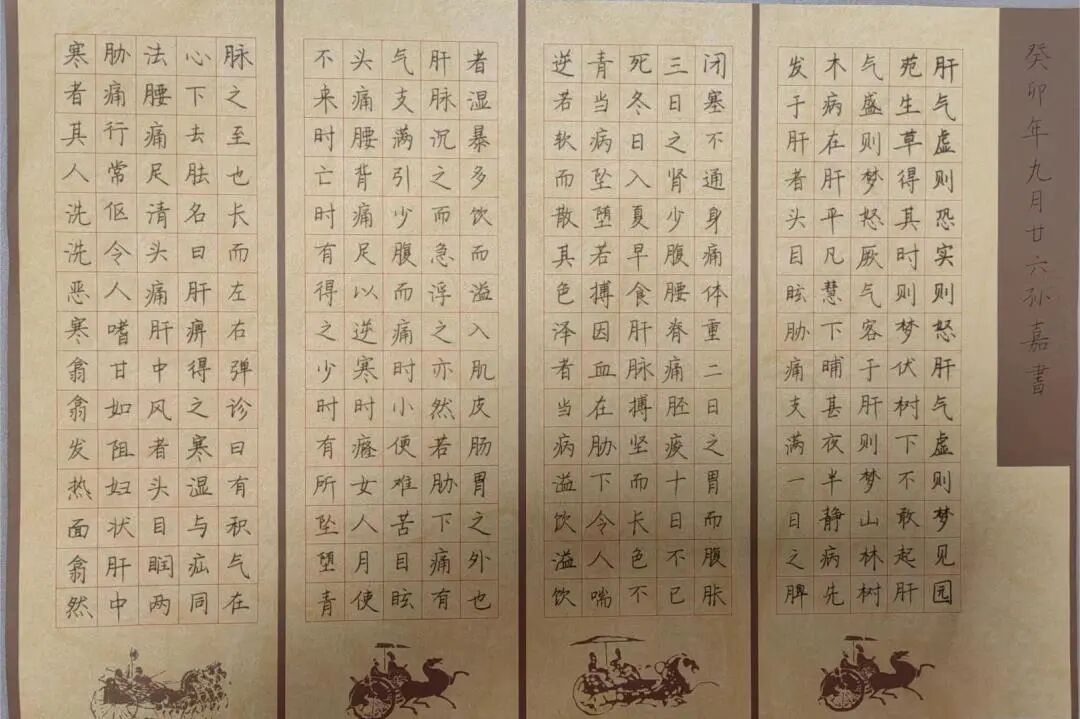 癸卯年九月廿六孙嘉書
肝气虚则恐实则怒肝气虚则梦见园
苑生草得其时则梦伏树下不敢起肝
气盛则梦怒厥气客于肝则梦山林树
木病在肝平凡慧下晡甚夜半静病先
发于肝者头目眩胁痛支满一日之脾
闭塞不通身痛体重二日之胃而腹胀
三日之肾少腹腰脊痛胫痠十日不已
死冬日入夏早食肝脉搏坚而长色不
青当病坠堕若搏因血在胁下令人喘
逆若软而散其色泽者当病溢饮溢饮
者湿暴多饮而溢入肌皮肠胃之外也
肝脉沉之而急浮之亦然若胁下痛有
气支满引少腹而痛时小便难苦目眩
头痛腰背痛足以逆寒时癃女人月使
不来时亡时有得之少时有所坠堕青
脉之至也长而左右弹诊曰有积气在
心下去胠名曰肝痹得之寒湿与疝同
法腰痛足清头痛肝中风者头目𥆧两
胁痛行常伛令人嗜甘如阻妇状肝中
寒者其人洗洗恶寒翕翕发热面翕然